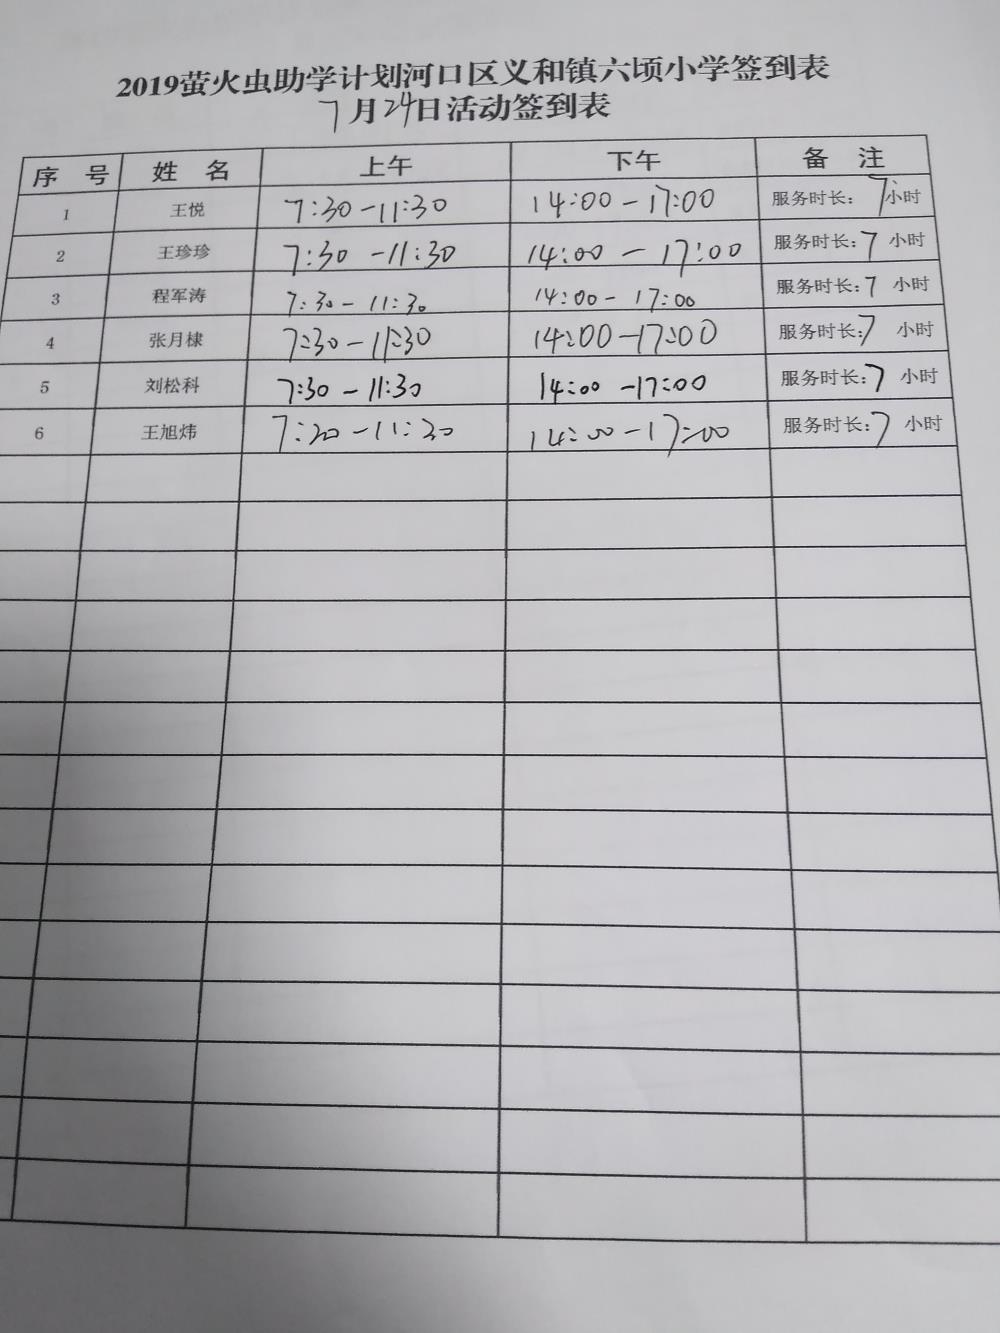 2019萤火虫助学计划河口区义和镇六顷小学签到表
7月24日活动签到表
序 号 姓 名 上午 下午 备 注
1 王悦 7:30-11:30 14:00-17:00 服务时长: 7小时
2 王珍珍 7:30-11:30 14:00-17:00 服务时长: 7 小时
3 程军涛 7:30-11:30 14:00-17:00 服务时长: 7 小时
4 张月棣 7:30-11:30 14:00-17:00 服务时长: 7 小时
5 刘松科 7:30-11:30 14:00-17:00 服务时长: 7 小时
6 王旭炜 7:30-11:30 14:00-17:00 服务时长: 7 小时